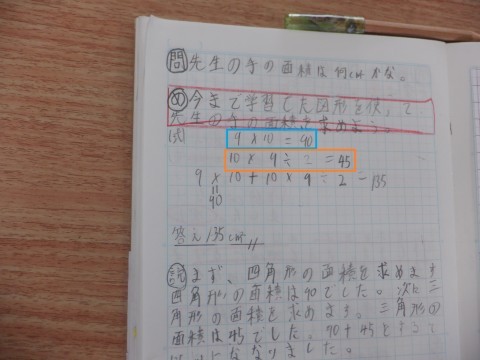 問 先生の手の面積は何cm²かな。
め 今まで学習した図形を使って
先生の手の面積を求めよう。
(式)
9×10=90
10×9÷2=45
9×10+10×9÷2=135
90
答え135cm²
説 まず、四角形の面積を求めます
四角形の面積は90でした。次に三
角形の面積を求めます。三角形の
面積は45でした。90+45をすると
になりました。